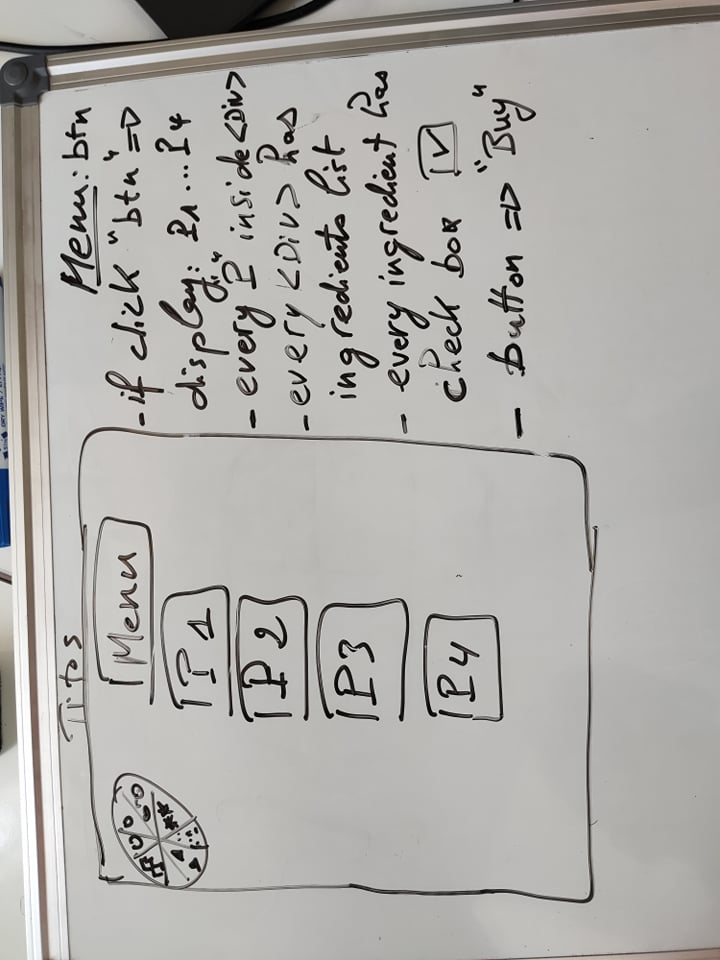 Titos
Menu
P1
P2
P3
P4
Menu: btn
- if click "btn" =>
display: P1 ... P4
- every "P" inside <Div>
- every <Div> has
ingredients list
- every ingredient has
check box
- button => "Buy"
DRY WIPE